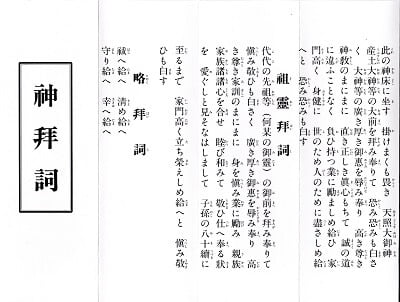 此の神床に坐す　掛けまくも畏き　天照大御神
産土大神等の大前を拜み奉りて　恐み恐みも白さ
く　大神等の廣き厚き御惠を辱み奉り　高き尊き
神教のまにまに　直き正しき眞心もちて　誠の道
に違ふことなく　負ひ持つ業に勵ましめ給ひ　家
門高く　身健に　世のため人のために盡さしめ給
へと　恐み恐みも白す
祖靈拜詞
代代の先祖等（何某の御靈）の御前を拜み奉りて
愼み敬ひも白さく　廣き厚き御惠を辱み奉り　高
き尊き家訓のまにまに　身を愼み業に勵み　親族
家族諸諸心を合せ　睦び和みて　敬ひ仕へ奉る狀
を　愛ぐしと見そなはしまして　子孫の八十續に
至るまで　家門高く立ち榮えしめ給へと　愼み敬
ひも白す
略拜詞
祓へ給へ　清め給へ
守り給へ　幸へ給へ
神拜詞